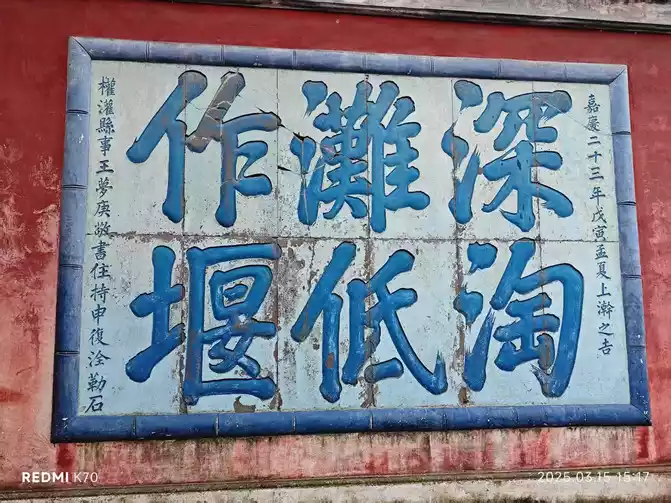 嘉慶二十三年戊寅孟夏上澣之吉
深淘
灘低
作堰
權灌縣事王夢庚敬書住持申復淦勒石
REDMI K70
2025.03.15 15:17